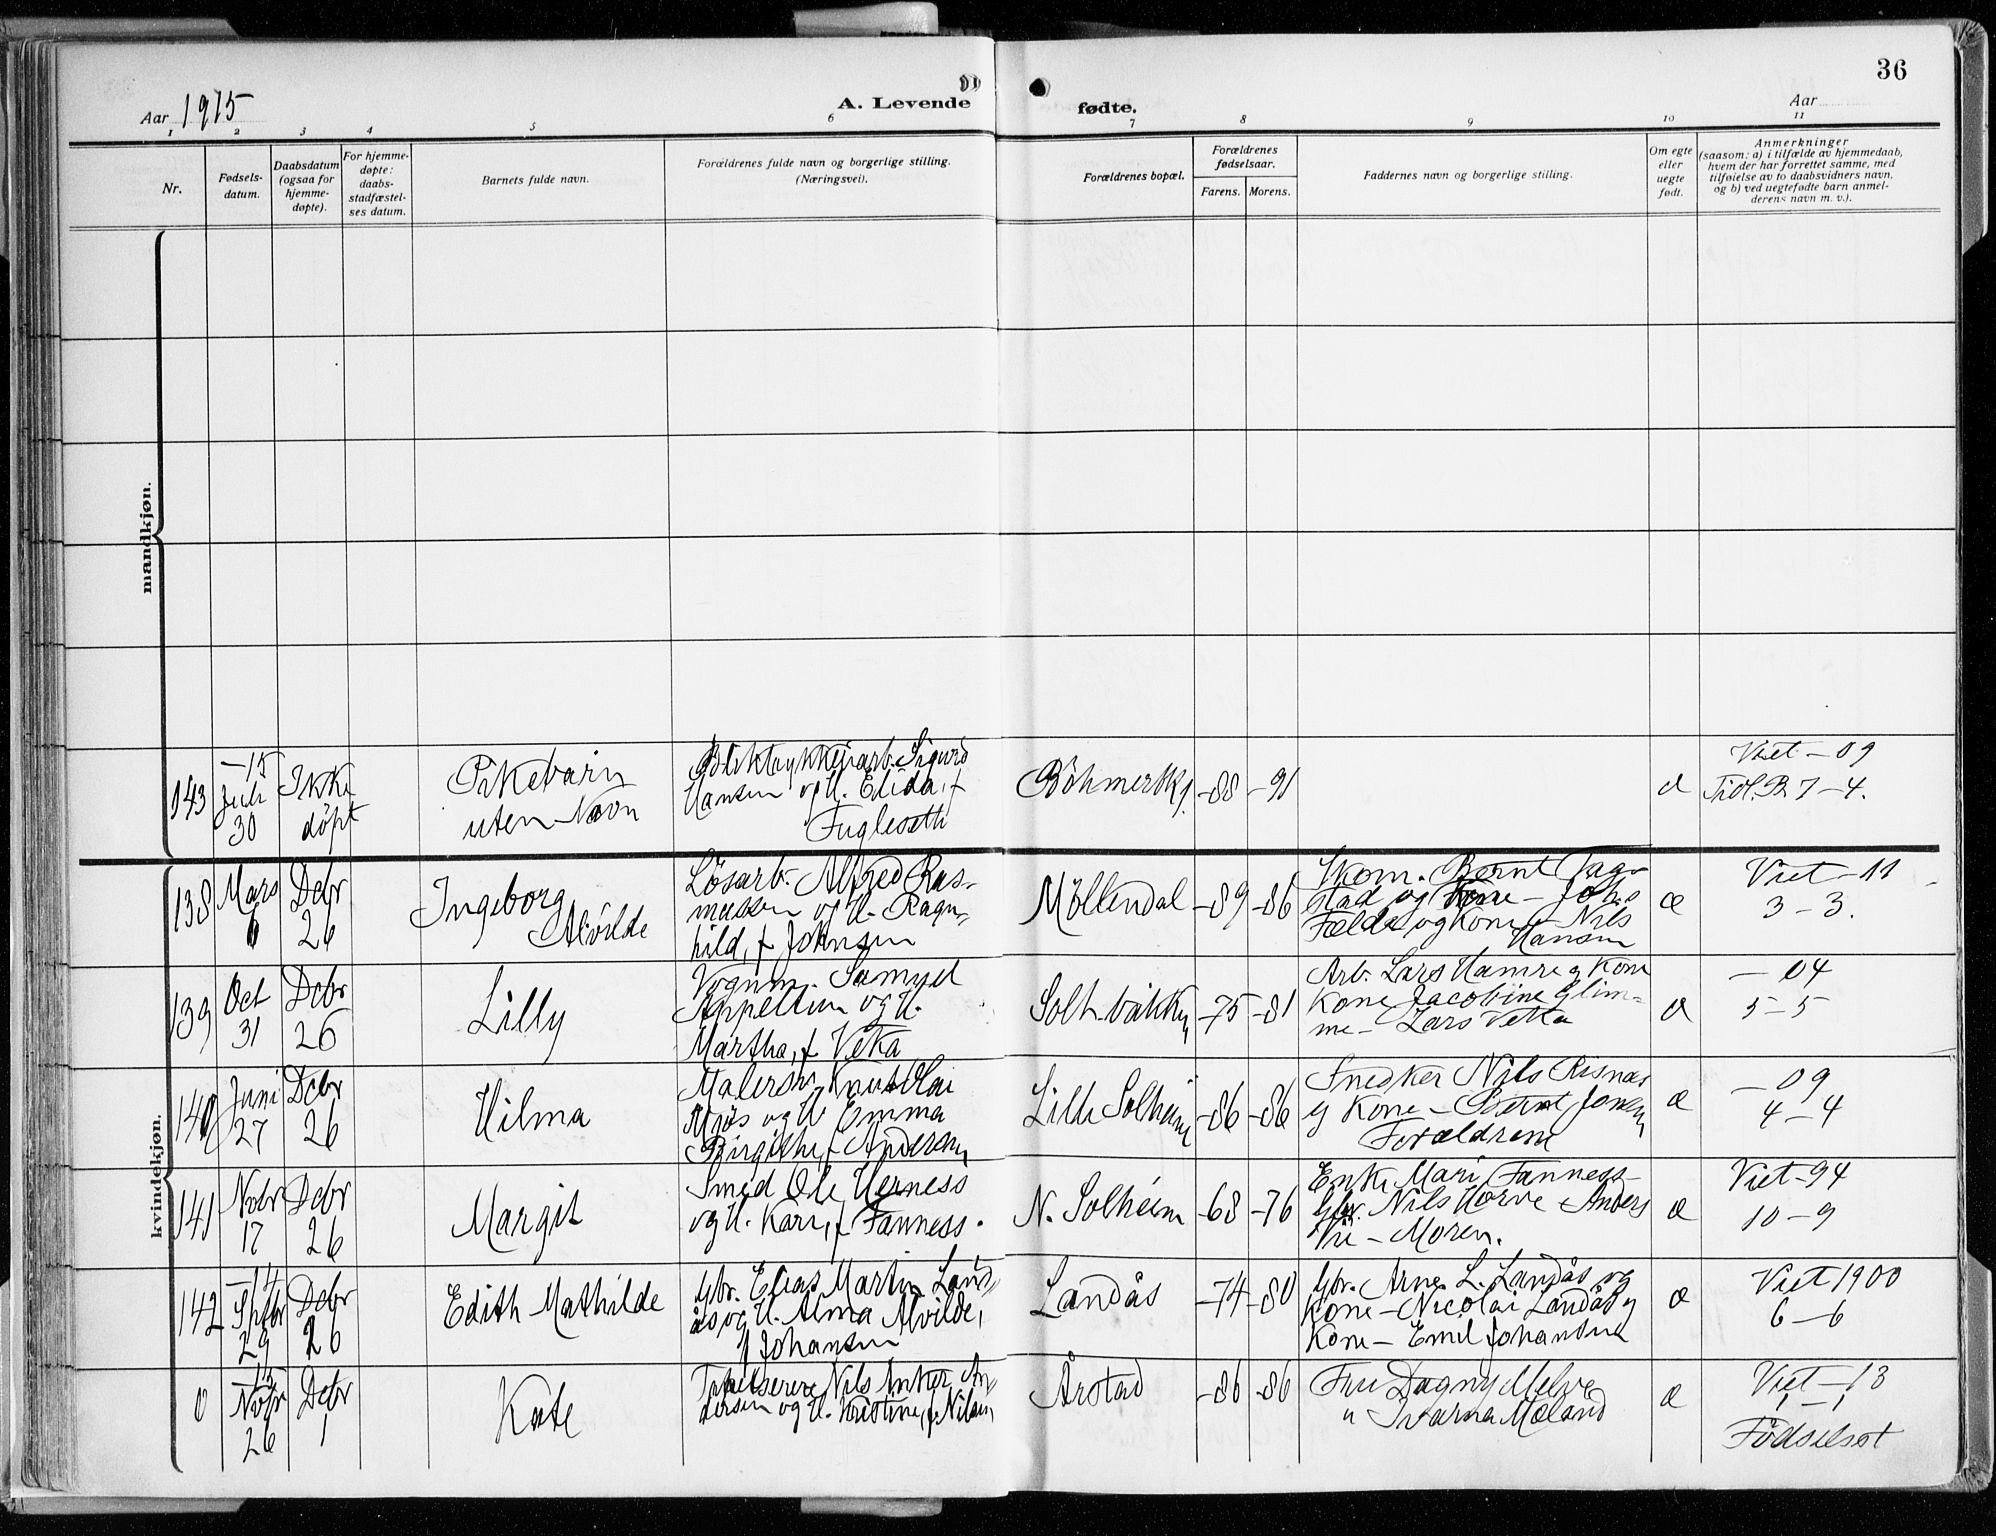 36
Aar 1915
A. Levende
fødte.
Aar
1 2 3 4 5 6 7 8 9 10 11
Nr.
Fødsels-
datum.
Daabsdatum
(ogsaa for
hjemme-
døpte).
For hjemme-
døpte:
daabs-
stadfæstel-
ses datum.
Barnets fulde navn.
Forældrenes fulde navn og borgerlige stilling.
(Næringsvei).
Forældrenes bopæl.
Forældrenes
fødselsaar.
Farens. Morens.
Faddernes navn og borgerlige stilling.
Om egte
eller
uegte
født.
Anmerkninger
(saasom: a) i tilfælde av hjemmedaab,
hvem der har forrettet samme, med
tilføielse av to daabsvidners navn,
og b) ved uegtefødte barn anmel-
derens navn m. v.).
mandkjøn.
143
-15
Juli
30
Ikke
døpt
Pikebarn
uten Navn
Sigurd
Hansen og H. Elida, f
Fugleseth
-88
-91
æ
Viet - 09
7-4.
kvindekjøn.
138
Mars
6
Dcbr
26
Ingeborg
Alvilde
Løsarb. Alfred Ras-
mussen og H. Ragn-
hild, f Johnsen
Møllendal
-89
-86
Bernt
stad og Kone - Johs
og Kone - Nils
Hansen
æ
Viet - 11
3-3.
139
Oct
31
Dcbr
26
Lilly
Vognm. Samuel
og H.
Martha, f
-75
-81
Arb. Lars Hamre og Kone
Kone Jacobine Glim-
me - Lars
æ
- 04
5-5
140
Juni
27
Dcbr
26
Hilma
Malersv. Knut Olai
Mjøs og H. Emma
Birgithe, f Andersen
Lille Solheim
-86
-86
Snedker Nils Risnes
og Kone - Bernt Jonsen
Forældrene
æ
- 09
4-4
141
Novbr
17
Dcbr
26
Margit
Smed Ole Herness
og H. Kari, f Fanness.
N. Solheim
-68
-76
Enke Mari Fanness -
Gbr. Nils Horve - Anders
- Moren.
æ
Viet - 94
10-9
142
-14
Spbr
29
Dcbr
26
Edith Mathilde
Gbr. Elias Martin Land-
ås og H. Alma Alvilde,
f Johansen
Landås
-74
-80
Gbr. Arne L. Landås og
Kone - Nicolai Landås og
Kone - Emil Johansen
æ
Viet 1900
6-6
0
-15
Novbr
26
Dcbr
1
Kate
Nils Anker An-
dersen og H. Kristine, f. Nilsen
Årstad
-86
-86
Fru Dagny Melve
" Ivarna Mæland
æ
Viet - 13
1-1
Fødselsat